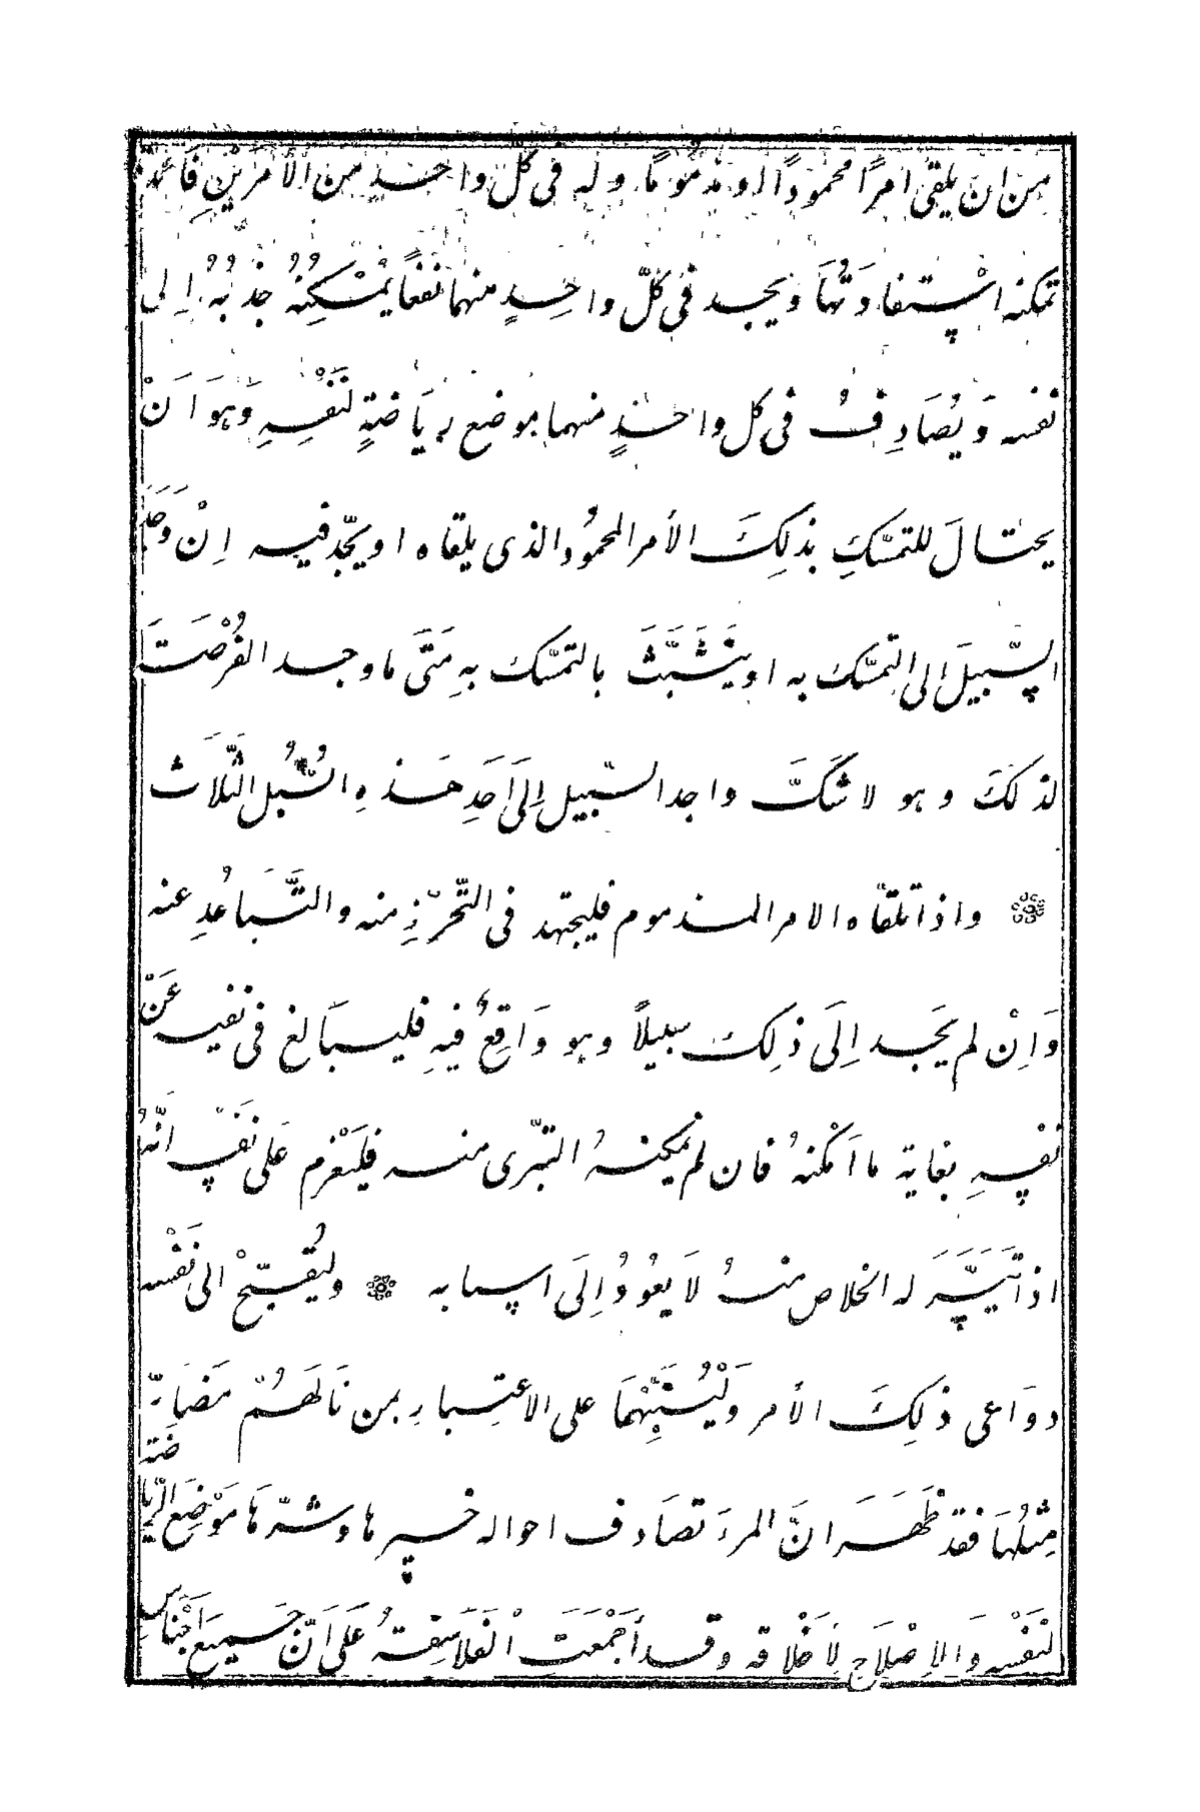 من ان يلقى امرًا محمودًا او مذمومًا وله فى كل واحد من الأمرَيْنِ فَائدة
تمكنه اسْتفادَتُهَا وَيجد فى كلّ واحِدٍ منهما نفعًا يُمْكِنُهُ جذبُهُ اِلى
نفسه وَيُصَادِفُ فى كل واحدٍ منهما موضع ريَاضةٍ لنَفْسِهِ وَهوَ اَنْ
يحتالَ للتمسّكِ بذلِكَ الأمر المحمُود الذى يلقاه او يجّد فيه اِنْ وَجَدَ
السّبيلَ الى التمسّك به او يتَشَبَّثَ بالتمسّك بهِ مَتَّى ما وجد الفُرْصَتَ
لذلكَ وهو لا شَكَّ واجد السّبيل اِلَى اَحَدِ هَذهِ السُّبُل الثَّلَاث
واذا تلقّاه الامر المذموم فليجتهد فى التّحرّزِ منه والتَّبَاعُدِ عنه
وَاِنْ لم يَجَد اِلَى ذلِكَ سبيلًا وهو وَاقِعٌ فيهِ فليبَالغ فى نفيه عَنْ
نفْسِهِ بغاية ما اَمْكنهُ فان لم يمكنهُ التبّرى منه فليَعْزم عَلى نَفْسه انَّهُ
اذا تَيَسَّرَ له الخلاص منهُ لَا يعُودُ اِلَى اسبابه ۞ وليُقبّحْ الى نَفْسه
دوَاعى ذلِكَ الأمر وَلْيُنَبِّهْهَا على الاعتِبارِ بمن نَالَهُمْ مَضَارّ
مِثلُهَا فقد ظَهَرَ انَّ المرءَ تصَادف احواله خيرها وشرّهَا مَوْضِعَ الرّيَاضة
لنَفْسه وَالاِصْلَاح لِاَخْلَاقه وقد أجْمَعَتْ الفَلَاسِفةُ عَلَى اَنّ جَميعَ اَجْنَاسِ